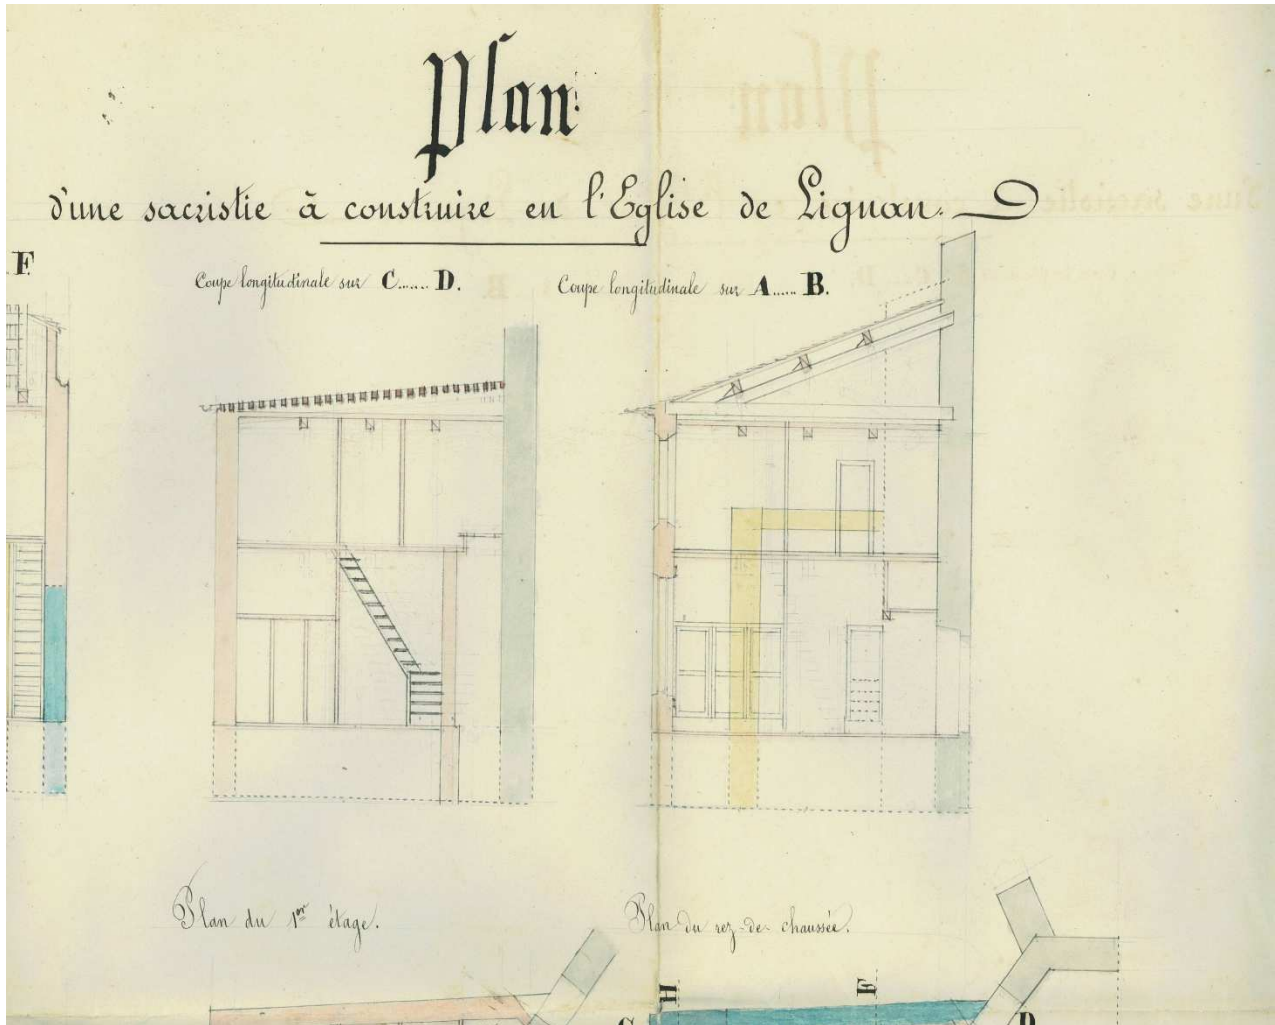 Plan
d'une sacristie à construire en l'Eglise de Lignan.
F
Coupe longitudinale sur C...... D.
Coupe longitudinale sur A..... B.
Plan du 1er étage.
Plan du rez-de-chaussée.
H
F
C
D